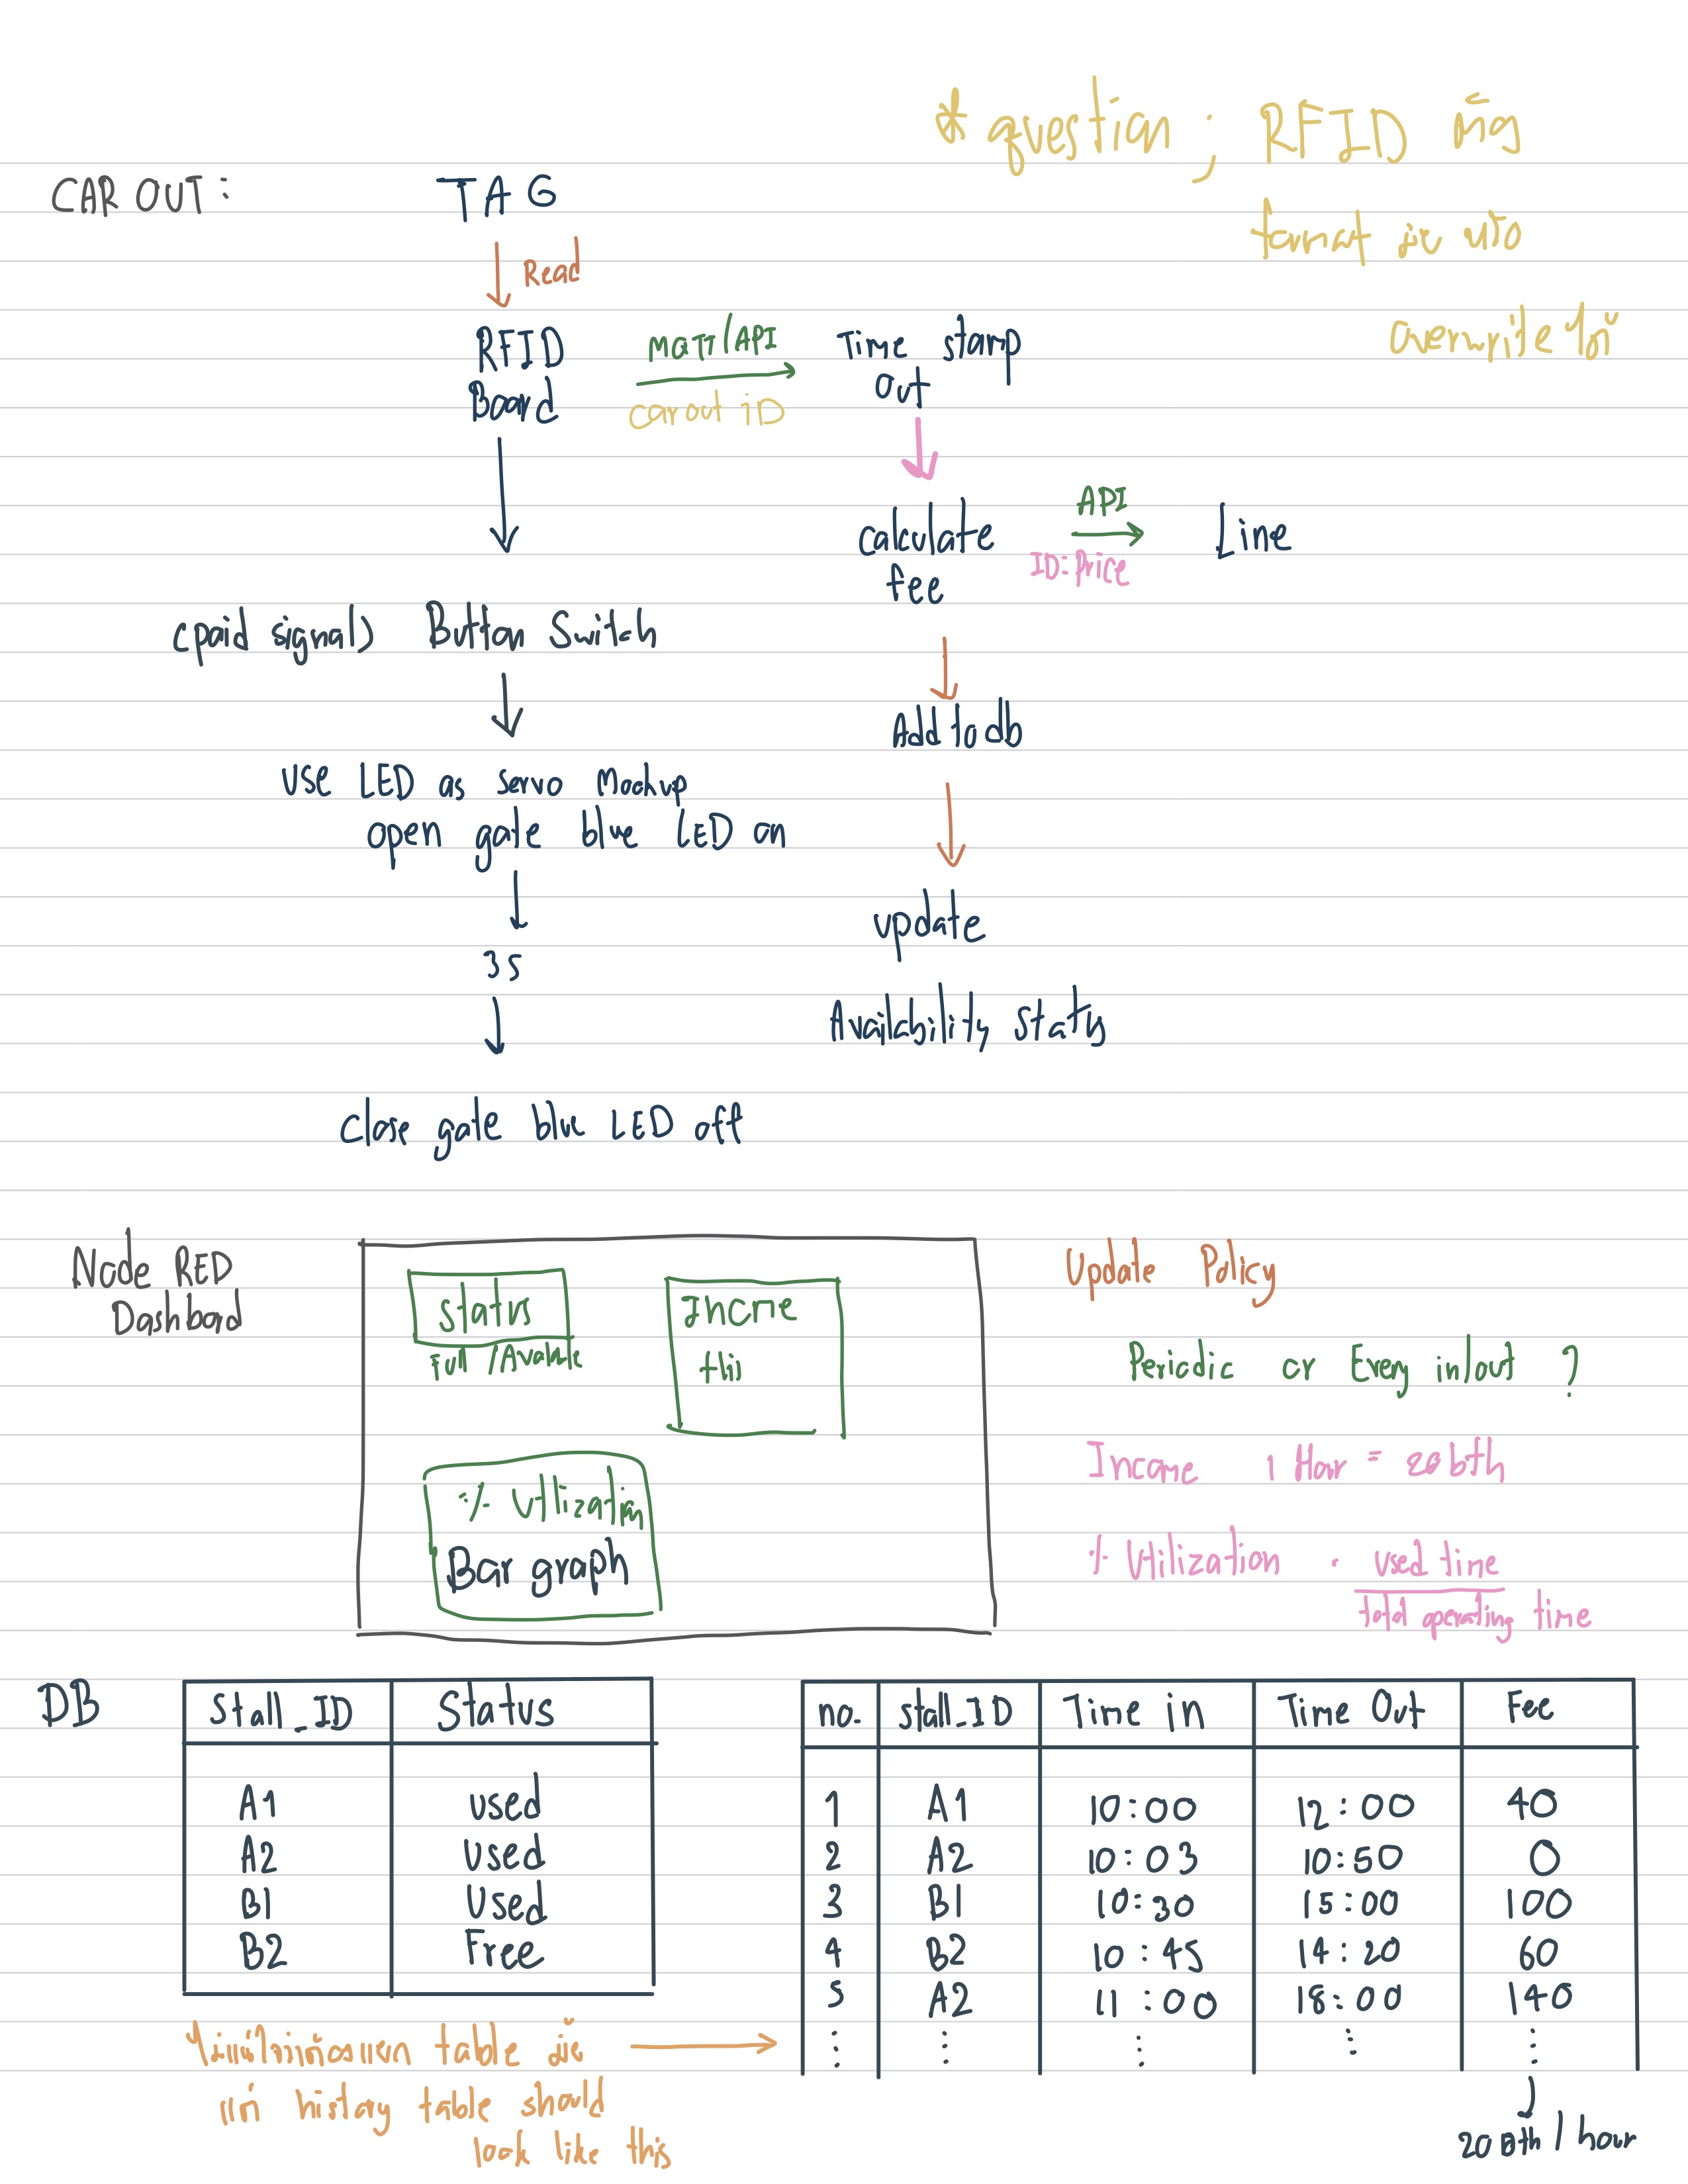 * question ; RFID ต้อง
format มั้ย หรือ
override ได้
CAR OUT :
TAG
Read
RFID
Board
MQTT/API
car out iD
Time stamp
out
calculate
fee
API
ID:Price
Line
(paid signal) Button Switch
Add to db
use LED as servo Mockup
open gate blue LED on
update
3s
Availability status
Close gate blue LED off
Node RED
Dashboard
Status
Full /Available
Income
this
% Utilization
Bar graph
Update Policy
Periodic or Every in/out ?
Income 1 Hour = 20 bth
% Utilization = used time
total operating time
DB
Stall_ID Status
A1 used
A2 Used
B1 Used
B2 Free
no. stall_ID Time in Time Out Fee
1 A1 10:00 12:00 40
2 A2 10:03 10:50 0
3 B1 10:30 15:00 100
4 B2 10:45 14:20 60
5 A2 11:00 18:00 140
ไม่แน่ใจว่าต้องแยก table มั้ย
แต่ history table should
look like this
20 Bth / hour